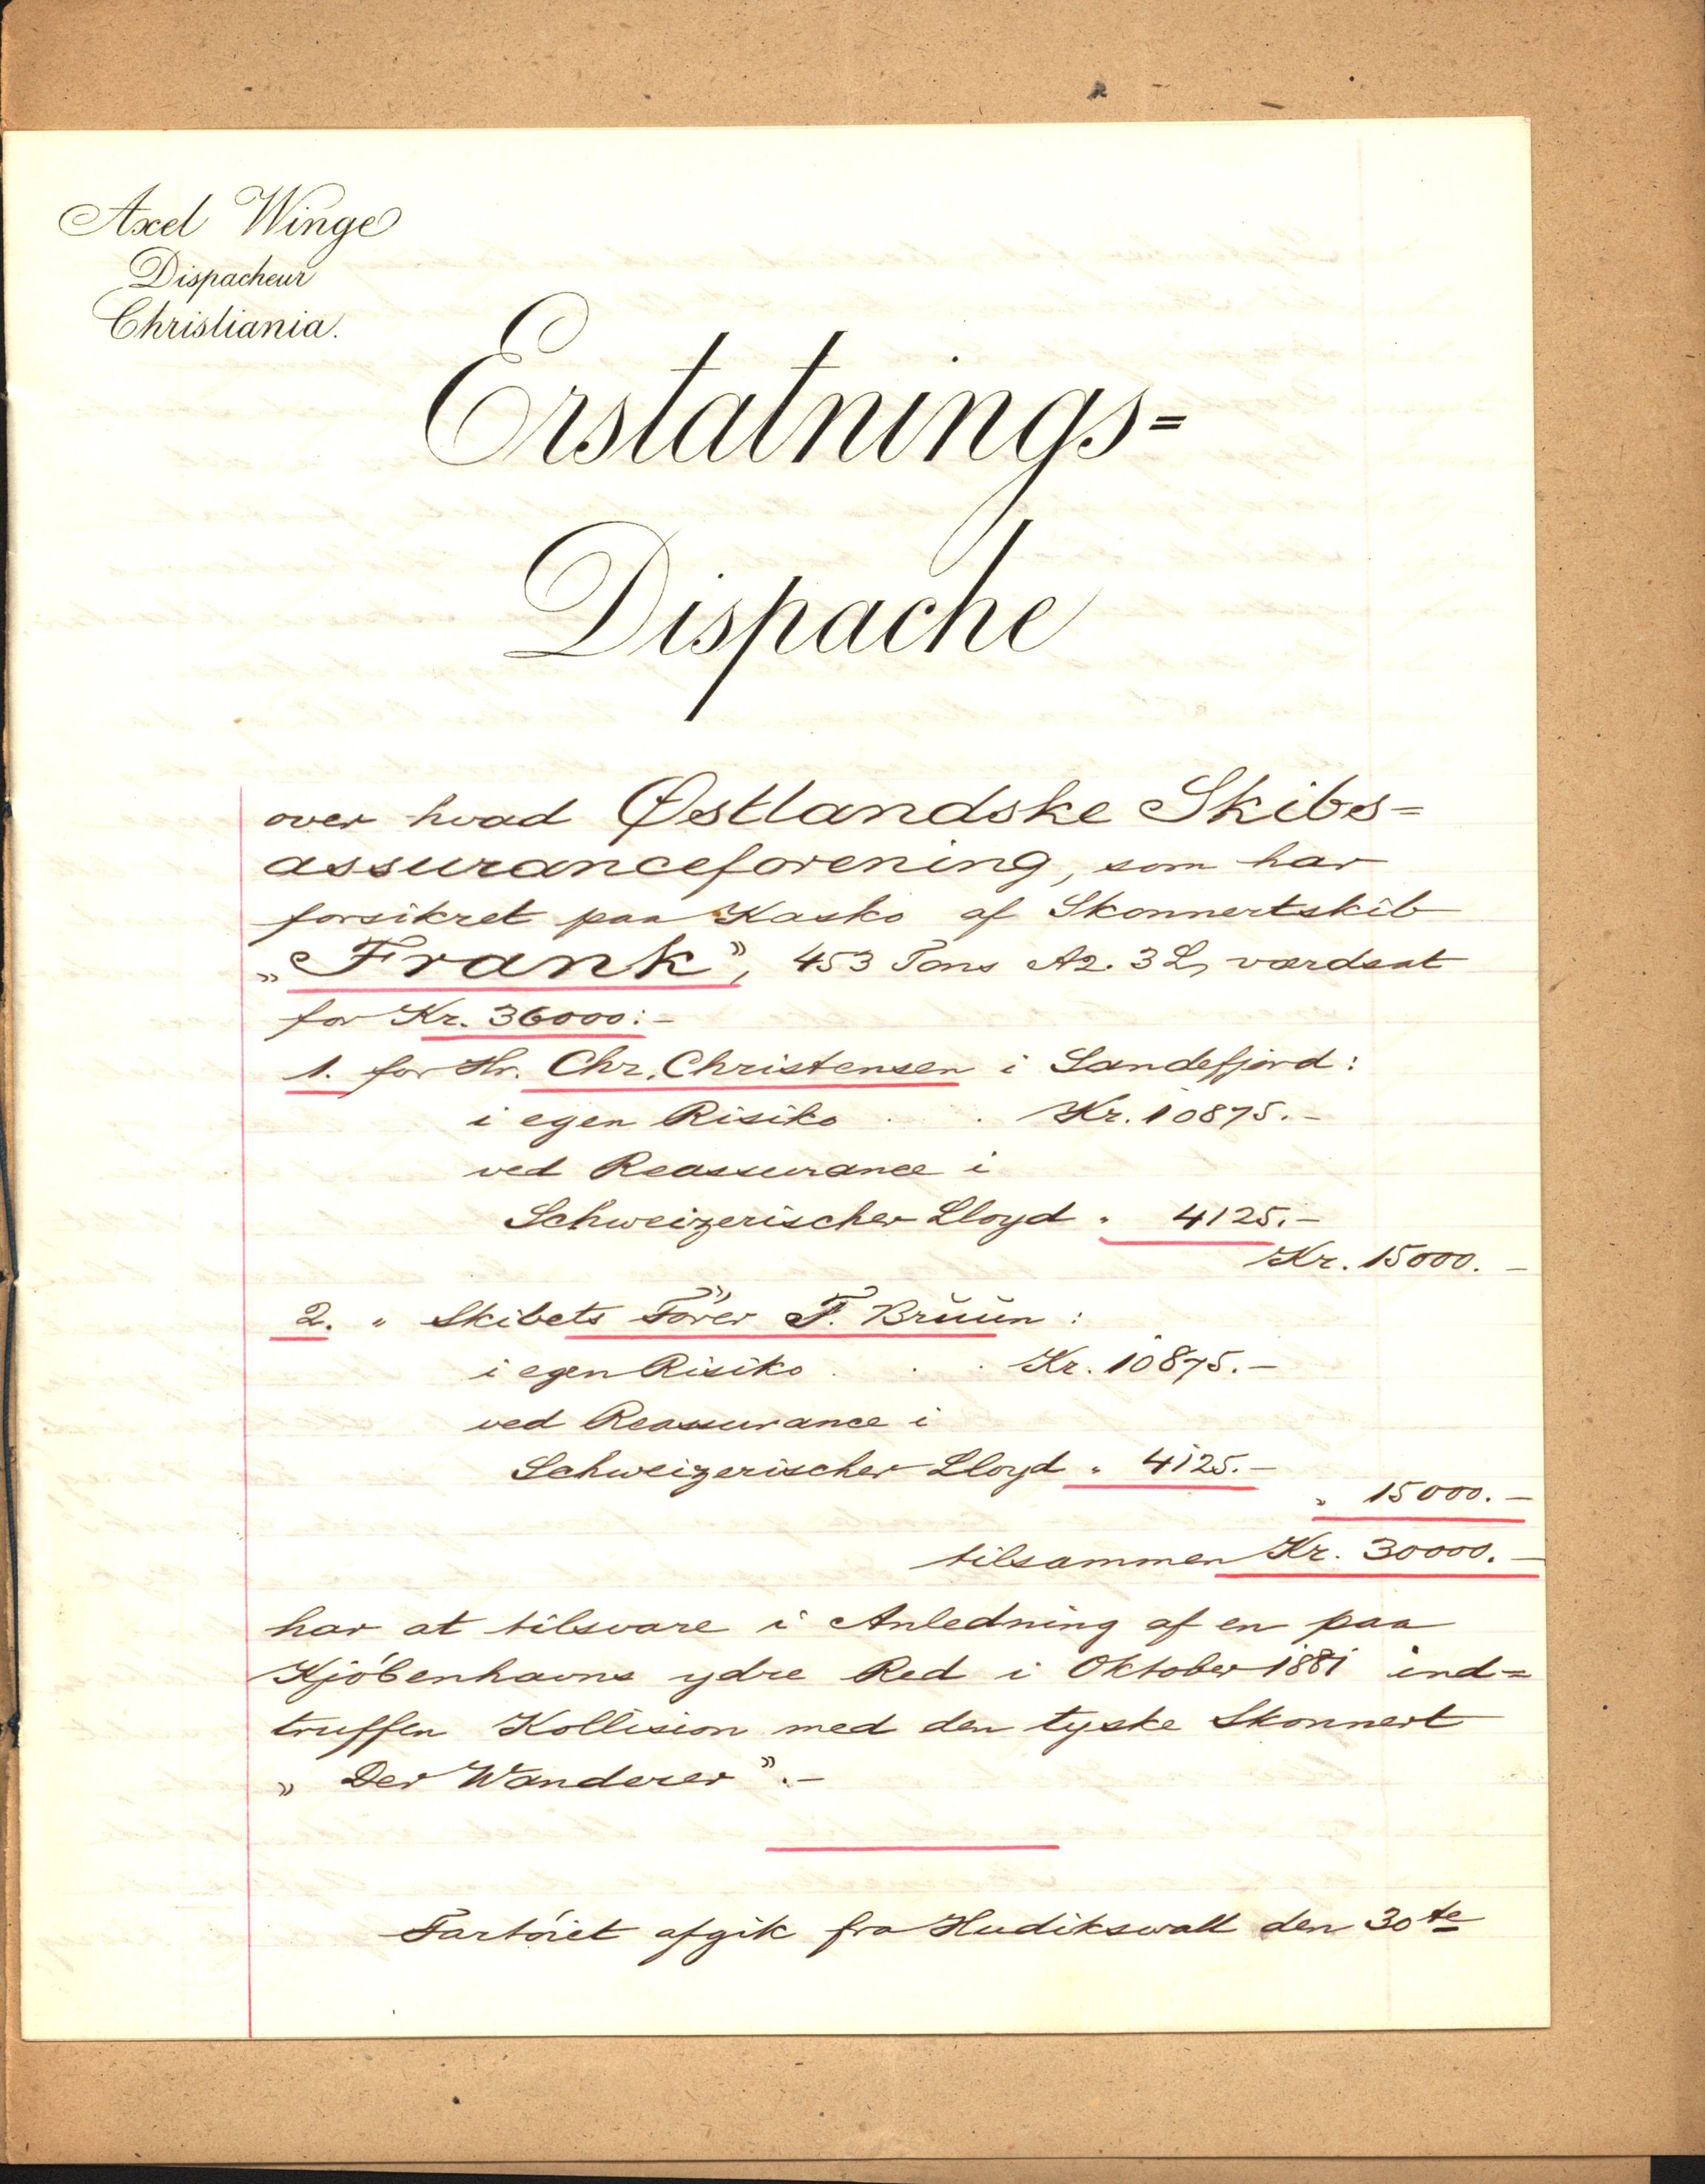 Axel Winge
Dispacheur
Christiania.
Erstatnings=
Dispache
over hvad Østlandske Skibs=
assuranceforening, som har
forsikret paa Kasko af Skonnertskib
„Frank”, 453 Tons A2. 3 L, værdsat
for Kr. 36000:-
1. for Hr. Chr. Christensen i Sandefjord:
i egen Risiko . . Kr. 10875.-
ved Reassurance i
Schweizerischer Lloyd " 4125.-
Kr. 15000.-
2. " Skibets Fører F. Bruun:
i egen Risiko . . . Kr. 10875.-
ved Reassurance i
Schweizerischer Lloyd " 4125.-
" 15000.-
tilsammen Kr. 30000.-
har at tilsvare i Anledning af en paa
Kjöbenhavns ydre Red i Oktober 1881 ind=
truffen Kollision med den tyske Skonnert
„Der Wanderer”.-
Fartöiet afgik fra Hudikswall den 30te